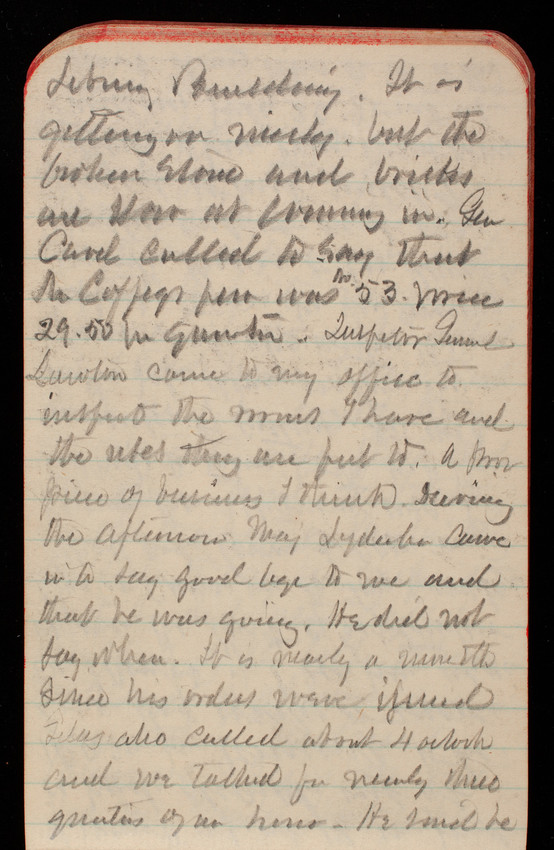 Library Building. It is
getting on nicely. but the
broken Stone and bricks
are slow at coming in. Gen
Card called to say that
the Coffeys pen was No. 53. price
29.50 per quarter. Inspector Genl
Lawton came to my office to
inspect the rooms I have and
the uses they are put to. A poor
piece of business I think. During
the afternoon Maj Lydecker came
in to say good bye to me and
that he was going. He did not
say when. It is nearly a month
since his orders were issued
also called about 4 oclock
and we talked for nearly three
quarters of an hour. He said he